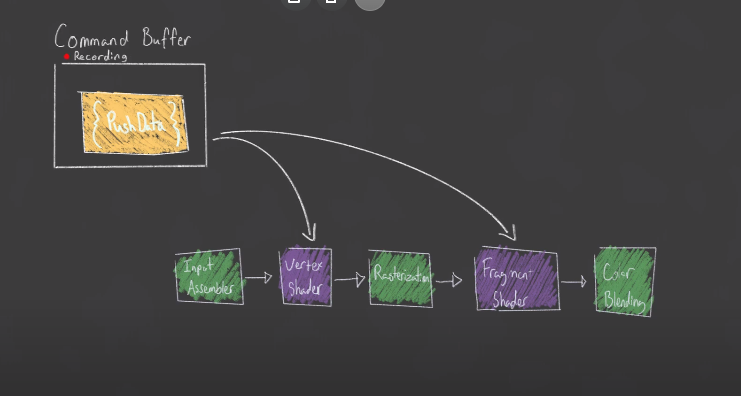 Command Buffer
Recording
{PushData}
Input
Assembler
Vertex
Shader
Rasterization
Fragment
Shader
Color
Blending